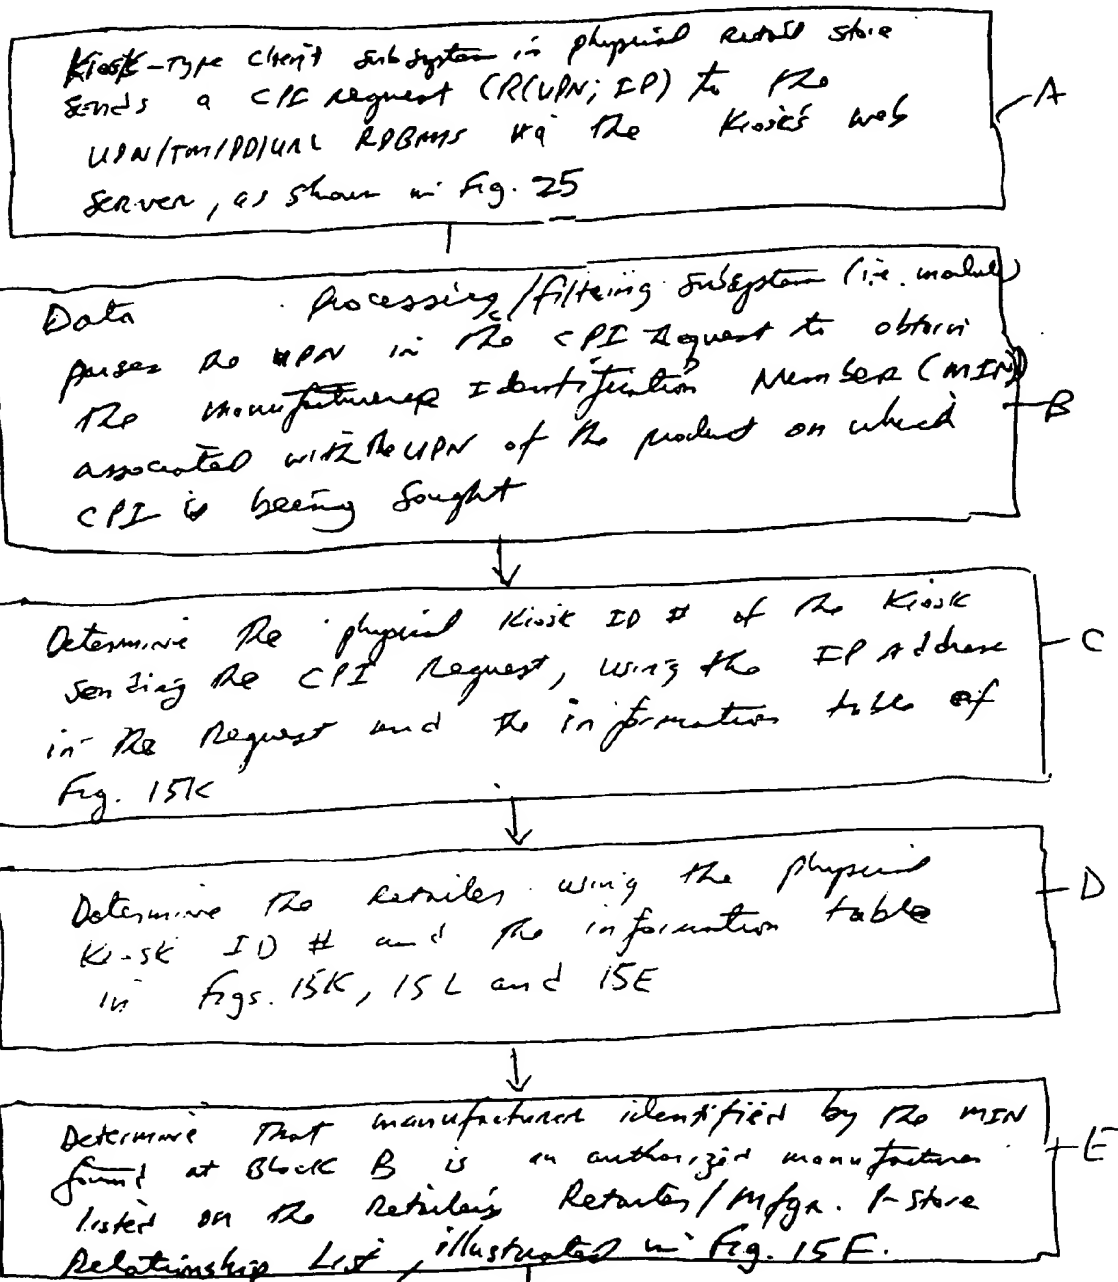 Kiosk-Type Client subsystem in physical retail store
sends a CPI request (R(UPN; IP) to the
UPN/TM/PD/URL RDBMS via the Kiosk's web
server, as shown in Fig. 25
A
Data Processing/filtering subsystem (i.e. module)
parses the UPN in the CPI request to obtain
the manufacturer Identification Number (MIN)
B
associated with the UPN of the product on which
CPI is being sought
Determine the physical Kiosk ID # of the Kiosk
C
sending the CPI Request, using the IP Address
in the Request and the information table of
Fig. 15K
Determine the retailer using the physical
D
Kiosk ID # and the information table
in Figs. 15K, 15L and 15E
Determine that manufacturer identified by the MIN
E
found at Block B is an authorized manufacturer
listed on the Retailer's Retailer/Mfgr. P-Store
Relationship List, illustrated in Fig. 15F.